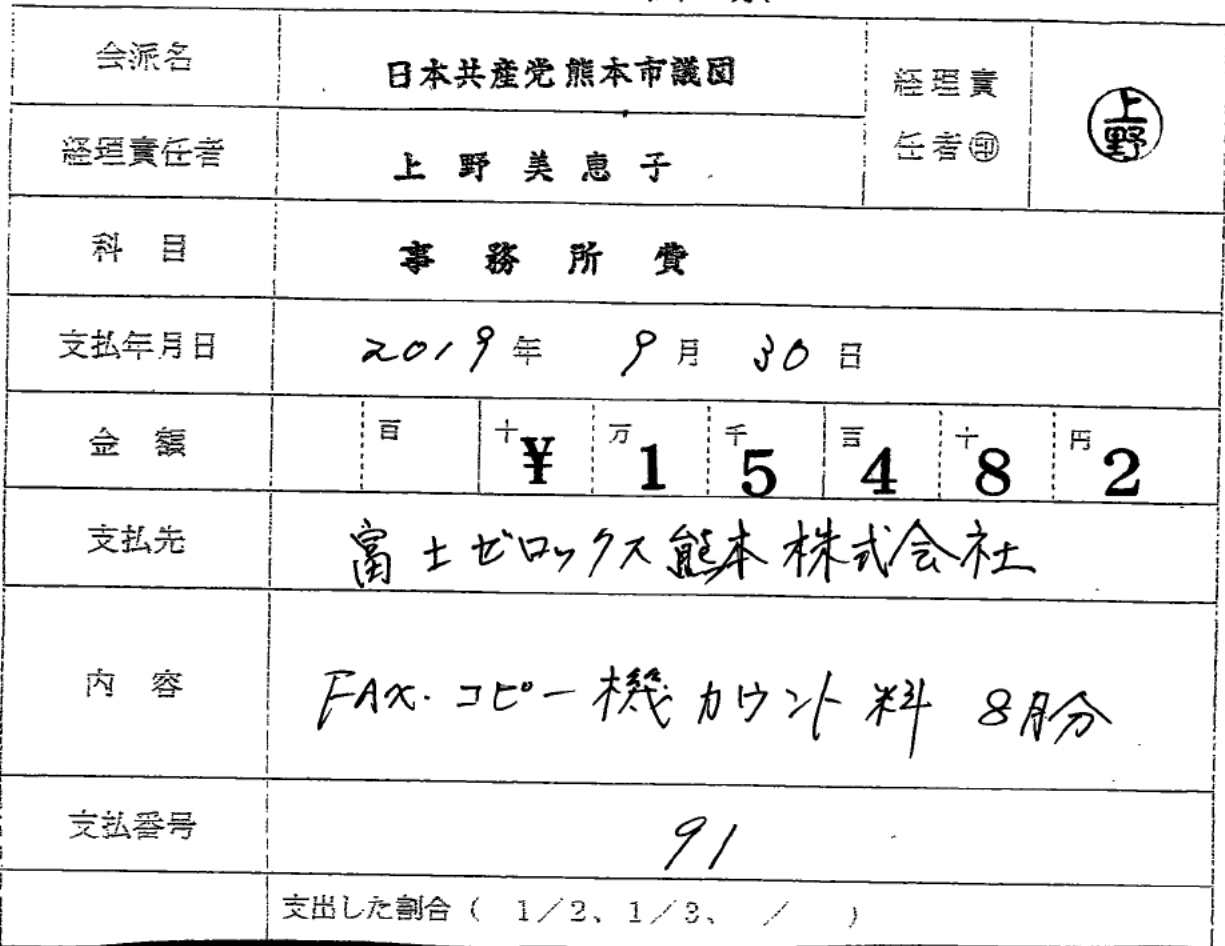 会派名 日本共産党熊本市議団 経理責任者㊞ 上野
経理責任者 上野美恵子
科目 事務所費
支払年月日 2019年 9月 30日
金額 百 十 ¥ 万 1 千 5 百 4 十 8 円 2
支払先 富士ゼロックス熊本株式会社
内容 FAX.コピー機カウント料 8月分
支払番号 91
支出した割合( 1/2、1/3、 / )